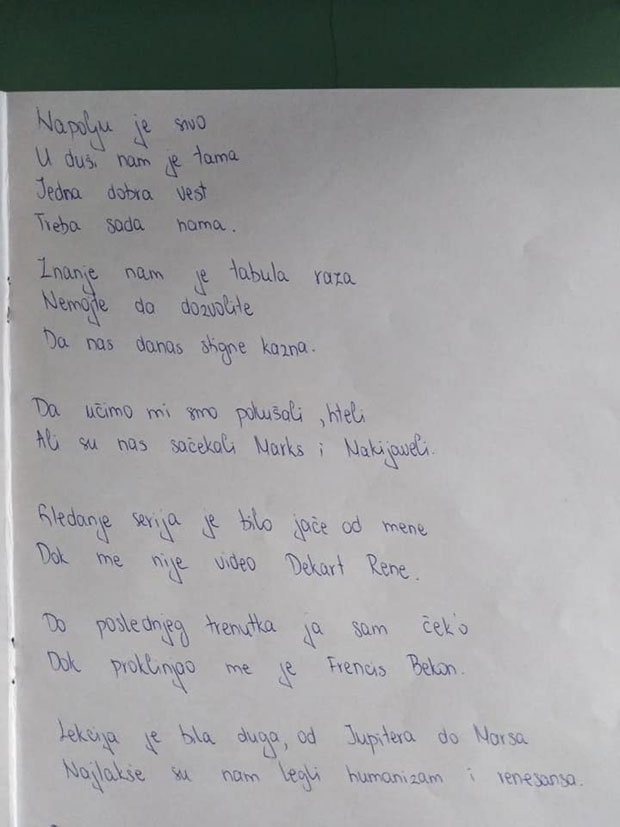 Napolju je sivo
U duši nam je tama
Jedna dobra vest
Treba sada nama.
Znanje nam je tabula raza
Nemojte da dozvolite
Da nas danas stigne kazna.
Da učimo mi smo pokušali, hteli
Ali su nas sačekali Marks i Makijaveli.
Gledanje serija je bilo jače od mene
Dok me nije video Dekart Rene.
Do poslednjeg trenutka ja sam ček'o
Dok proklinjao me je Frencis Bekon.
Lekcija je bila duga, od Jupitera do Marsa
Najlakše su nam legli humanizam i renesansa.